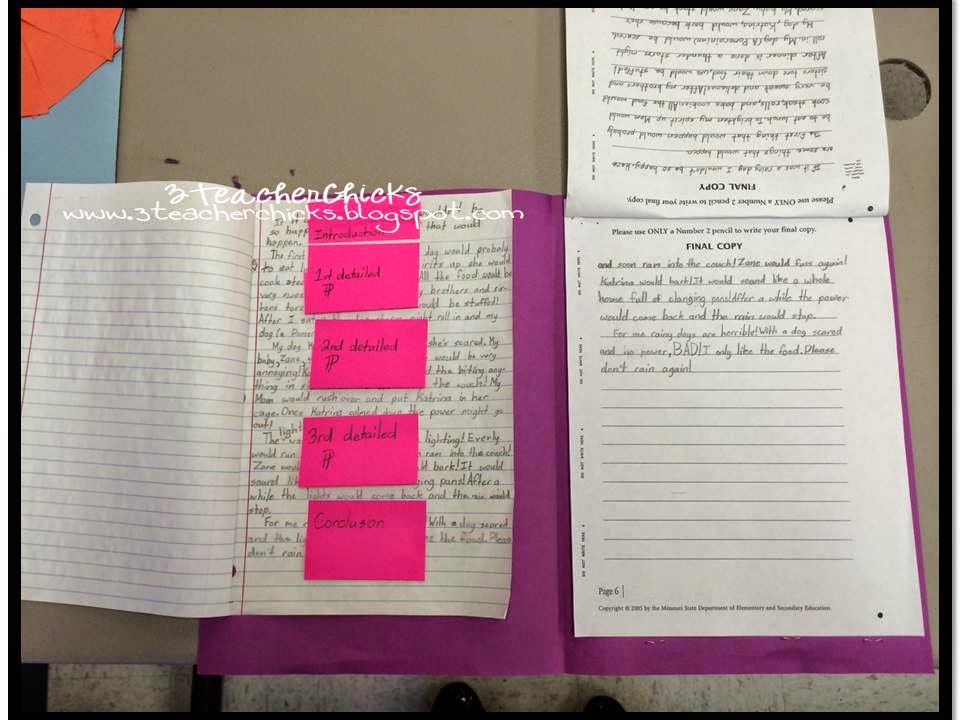 3 TeacherChicks
www.3teacherchicks.blogspot.com
so happ that would
happen. Introduction
The first day would probaly
to eat 1st detailed irits up she would
cook stea ¶ All the food would be
very swee y brothers and sis-
ters tor uld be stuffed!
After I roll in and my
dog (a Pomer
My dog K 2nd detailed she's scared. My
baby, Zane, ¶ would be very
annoying! K d the biting any-
thing in s the couch! My
Mom would rush over and put Katrina in her
cage. Once Katrina calmed down the power might go
out!
light
The 3rd detailed lighting! Everly
would run ¶ n ram into the couch!
Zane woul ld bark! It would
sound lik ging pans! After a
while the lights would come back and the rain would
stop.
For me Conclusion With a dog scared
and the lig the food. Pleas
don't rain
If it was a rainy day I wouldn't be so happy. Here
are some things that would happen.
The first thing that would happen would probaly
be to eat lunch. To brighten my spirit up Mom would
cook steak, rolls, and bake cookies! All the food would
be very sweet and delicious! After my brothers and
sisters tore down their food, we would be stuffed!
After dinner is done a thunder storm might
roll in. My dog (A Pomeranian) would be scared.
My dog, Katrina, would bark because she's
scared. My baby, Zane would
Please use ONLY a Number 2 pencil to write your final copy.
FINAL COPY
DO NOT WRITE HERE
DO NOT WRITE HERE
Please use ONLY a Number 2 pencil to write your final copy.
FINAL COPY
and soon ram into the couch! Zane would fuss again!
Katrina would bark! It would sound like a whole
house full of clanging pans! After a while the power
would come back and the rain would stop.
For me rainy days are horrible! With a dog scared
and no power, BAD! I only like the food. Please
don't rain again!
DO NOT WRITE HERE
DO NOT WRITE HERE
DO NOT WRITE HERE
DO NOT WRITE HERE
Page 6
Copyright © 2005 by the Missouri State Department of Elementary and Secondary Education.